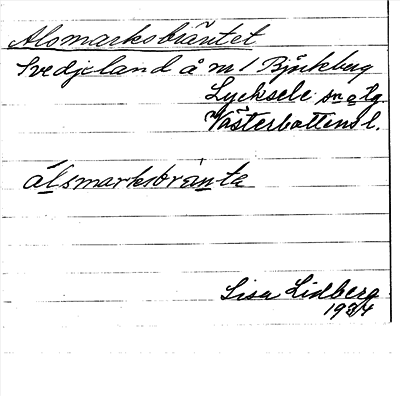 Alsmarksbräntet
Svedjeland å n:r 1 Björkberg
Lycksele sn o. lg.
Västerbottens l.
álsmarksbränta
Lisa Lidberg
1934